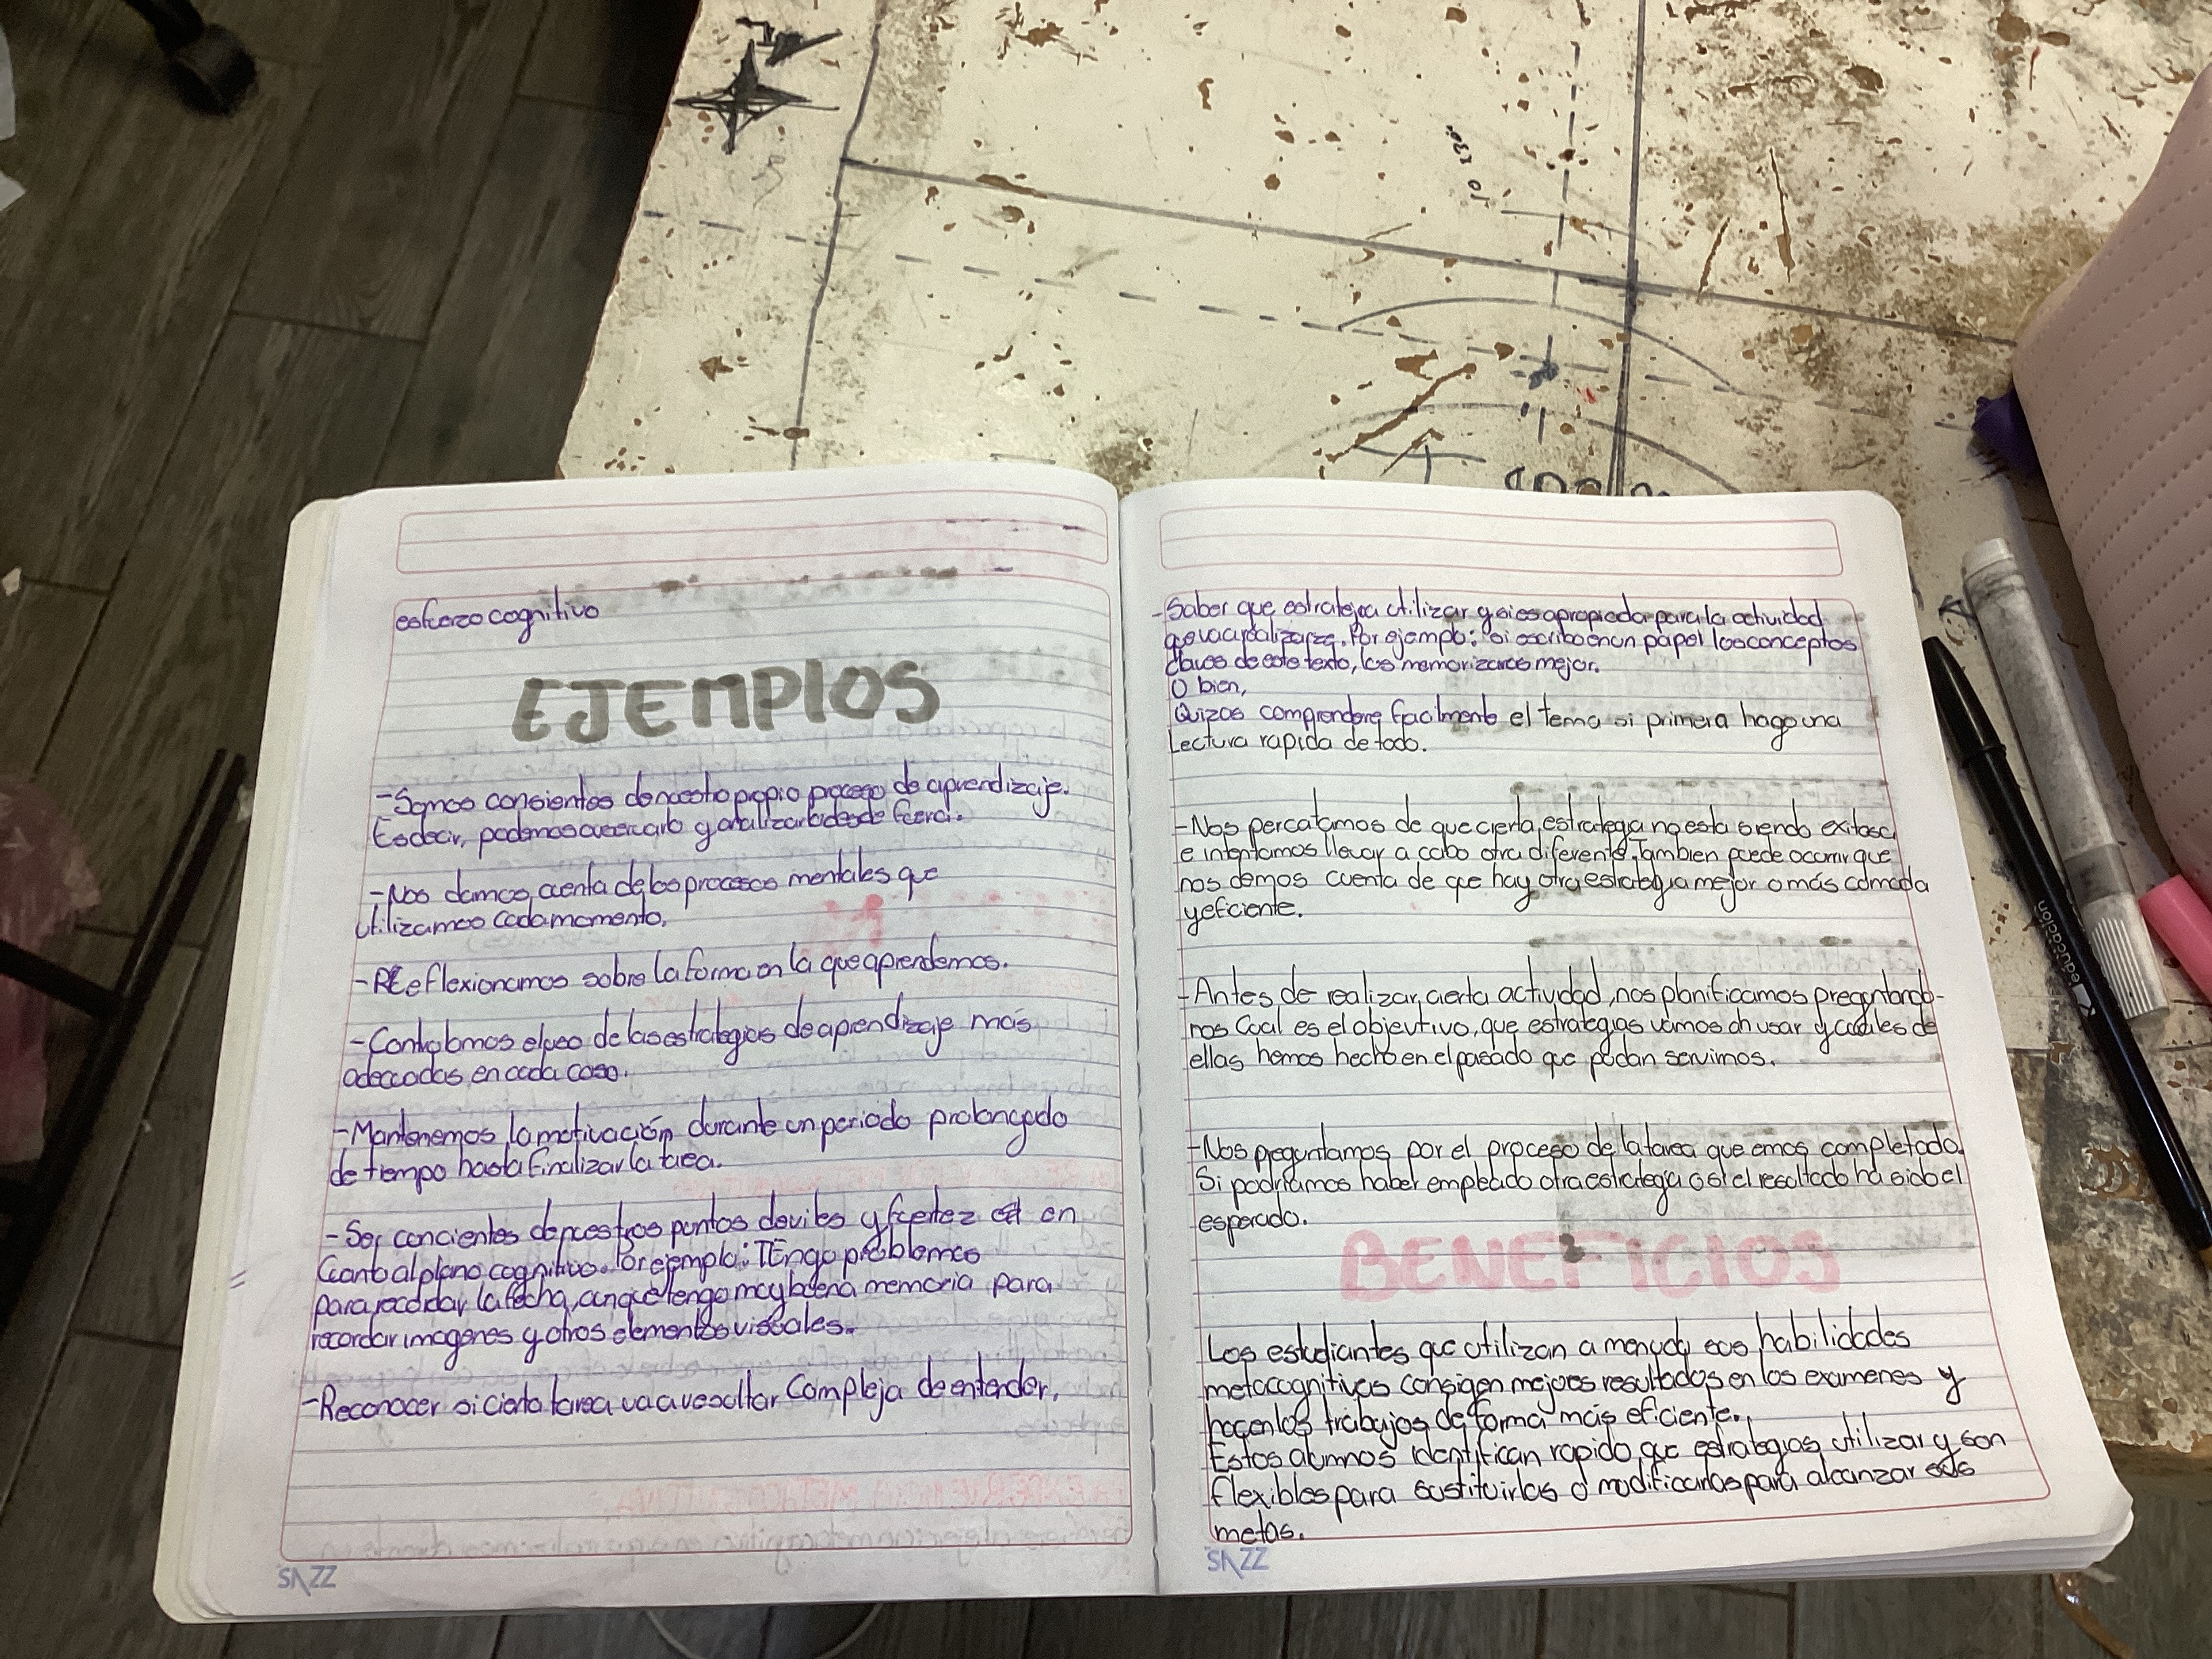 esfuerzo cognitivo
EJEMPlOS
-Somos consientes de nuestro propio proceso de aprendizaje.
Es decir, podemos avercarlo y analizarlo desde fuera.
-Nos damos cuenta de los procesos mentales que
utilizamos cada momento.
-REeflexionamos sobre la forma en la que aprendemos.
-Controlamos el uso de las estrategias de aprendizaje más
adecuadas en cada caso.
-Mantenemos la motivación durante un periodo prolongado
de tiempo hasta finalizar la tarea.
-Ser concientes de nuestros puntos deviles y fuertez en
cuanto al plano cognitivo. Por ejemplo: TEngo problemas
para recordar la fecha, aunque tengo muy buena memoria para
recordar imagenes y otros elementos visuales.
-Reconocer si cierta tarea va a resultar compleja de entender,
-Saber que estrategia utilizar y si es apropiada para la actividad
que va a realizarze. Por ejemplo: si escribo en un papel los conceptos
claves de este texto, los memorizares mejor.
O bien,
Quizas comprendere facilmente el tema si primera hago una
Lectura rapida de todo.
-Nos percatamos de que cierta estrategia no esta siendo exitosa
e intentamos llevar a cabo otra diferente. Tambien puede ocurrir que
nos demos cuenta de que hay otra estrategia mejor o más cómoda
y eficiente.
-Antes de realizar cierta actividad, nos planificamos preguntando-
nos cual es el objetivo, que estrategias vamos a usar y cuales de
ellas hemos hecho en el pasado que podan servirnos.
-Nos preguntamos por el proceso de la tarea que emos completado.
Si podriamos haber empleado otra estrategia o si el resultado ha sido el
esperado.
BENEFICIOS
Los estudiantes que utilizan a menudo sus habilidades
metacognitivas consigen mejores resultados en los examenes y
hacen los trabajos de forma más eficiente.
Estos alumnos identifican rapido que estrategias utilizar y son
flexibles para sustituirlas o modificarlas para alcanzar sus
metas.
SAZZ
SAZZ
educación